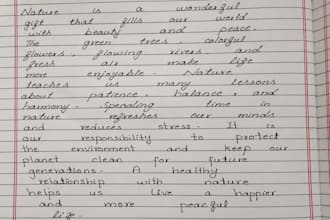 Nature is a wonderful
gift that fills our world
with beauty and peace.
The green trees, colorful
flowers, flowing rivers, and
fresh air make life
more enjoyable. Nature
teaches us many lessons
about patience, balance, and
harmony. Spending time in
nature refreshes our minds
and reduces stress. It is
our responsibility to protect
the environment and keep our
planet clean for future
generations. A healthy
relationship with nature
helps us live a happier
and more peaceful
life.